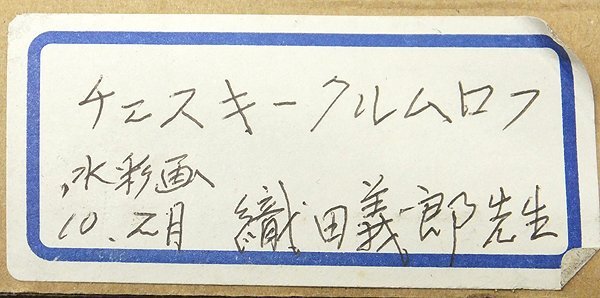 チェスキークルムロフ
水彩画
10.元月 織田義郎先生